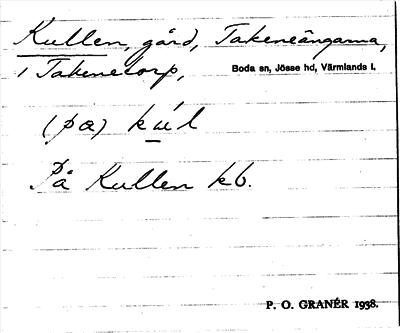 Kullen, gård, Takeneängarna,
i Takenetorp, Boda sn, Jösse hd, Värmlands l.
(pα) kúl
På Kullen kb.
P. O. GRANÉR 1938.